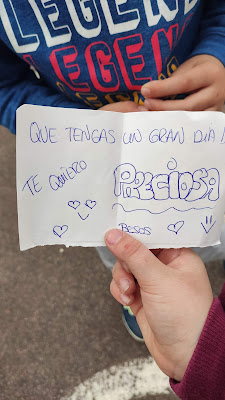 LEGEND
LEGEND
LEGEND
QUE TENGAS UN GRAN DIA!
TE QUIERO
PRECIOSA
BESOS